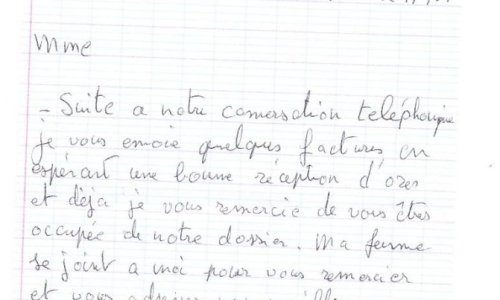 Mme
- Suite a notre conversation teléphonique
je vous envoie quelques factures, en
espérant une bonne réception d'ores
et dèja je vous remercie de vous êtres
occupée de notre dossier. Ma femme
se joint a moi pour vous remercier
et vous